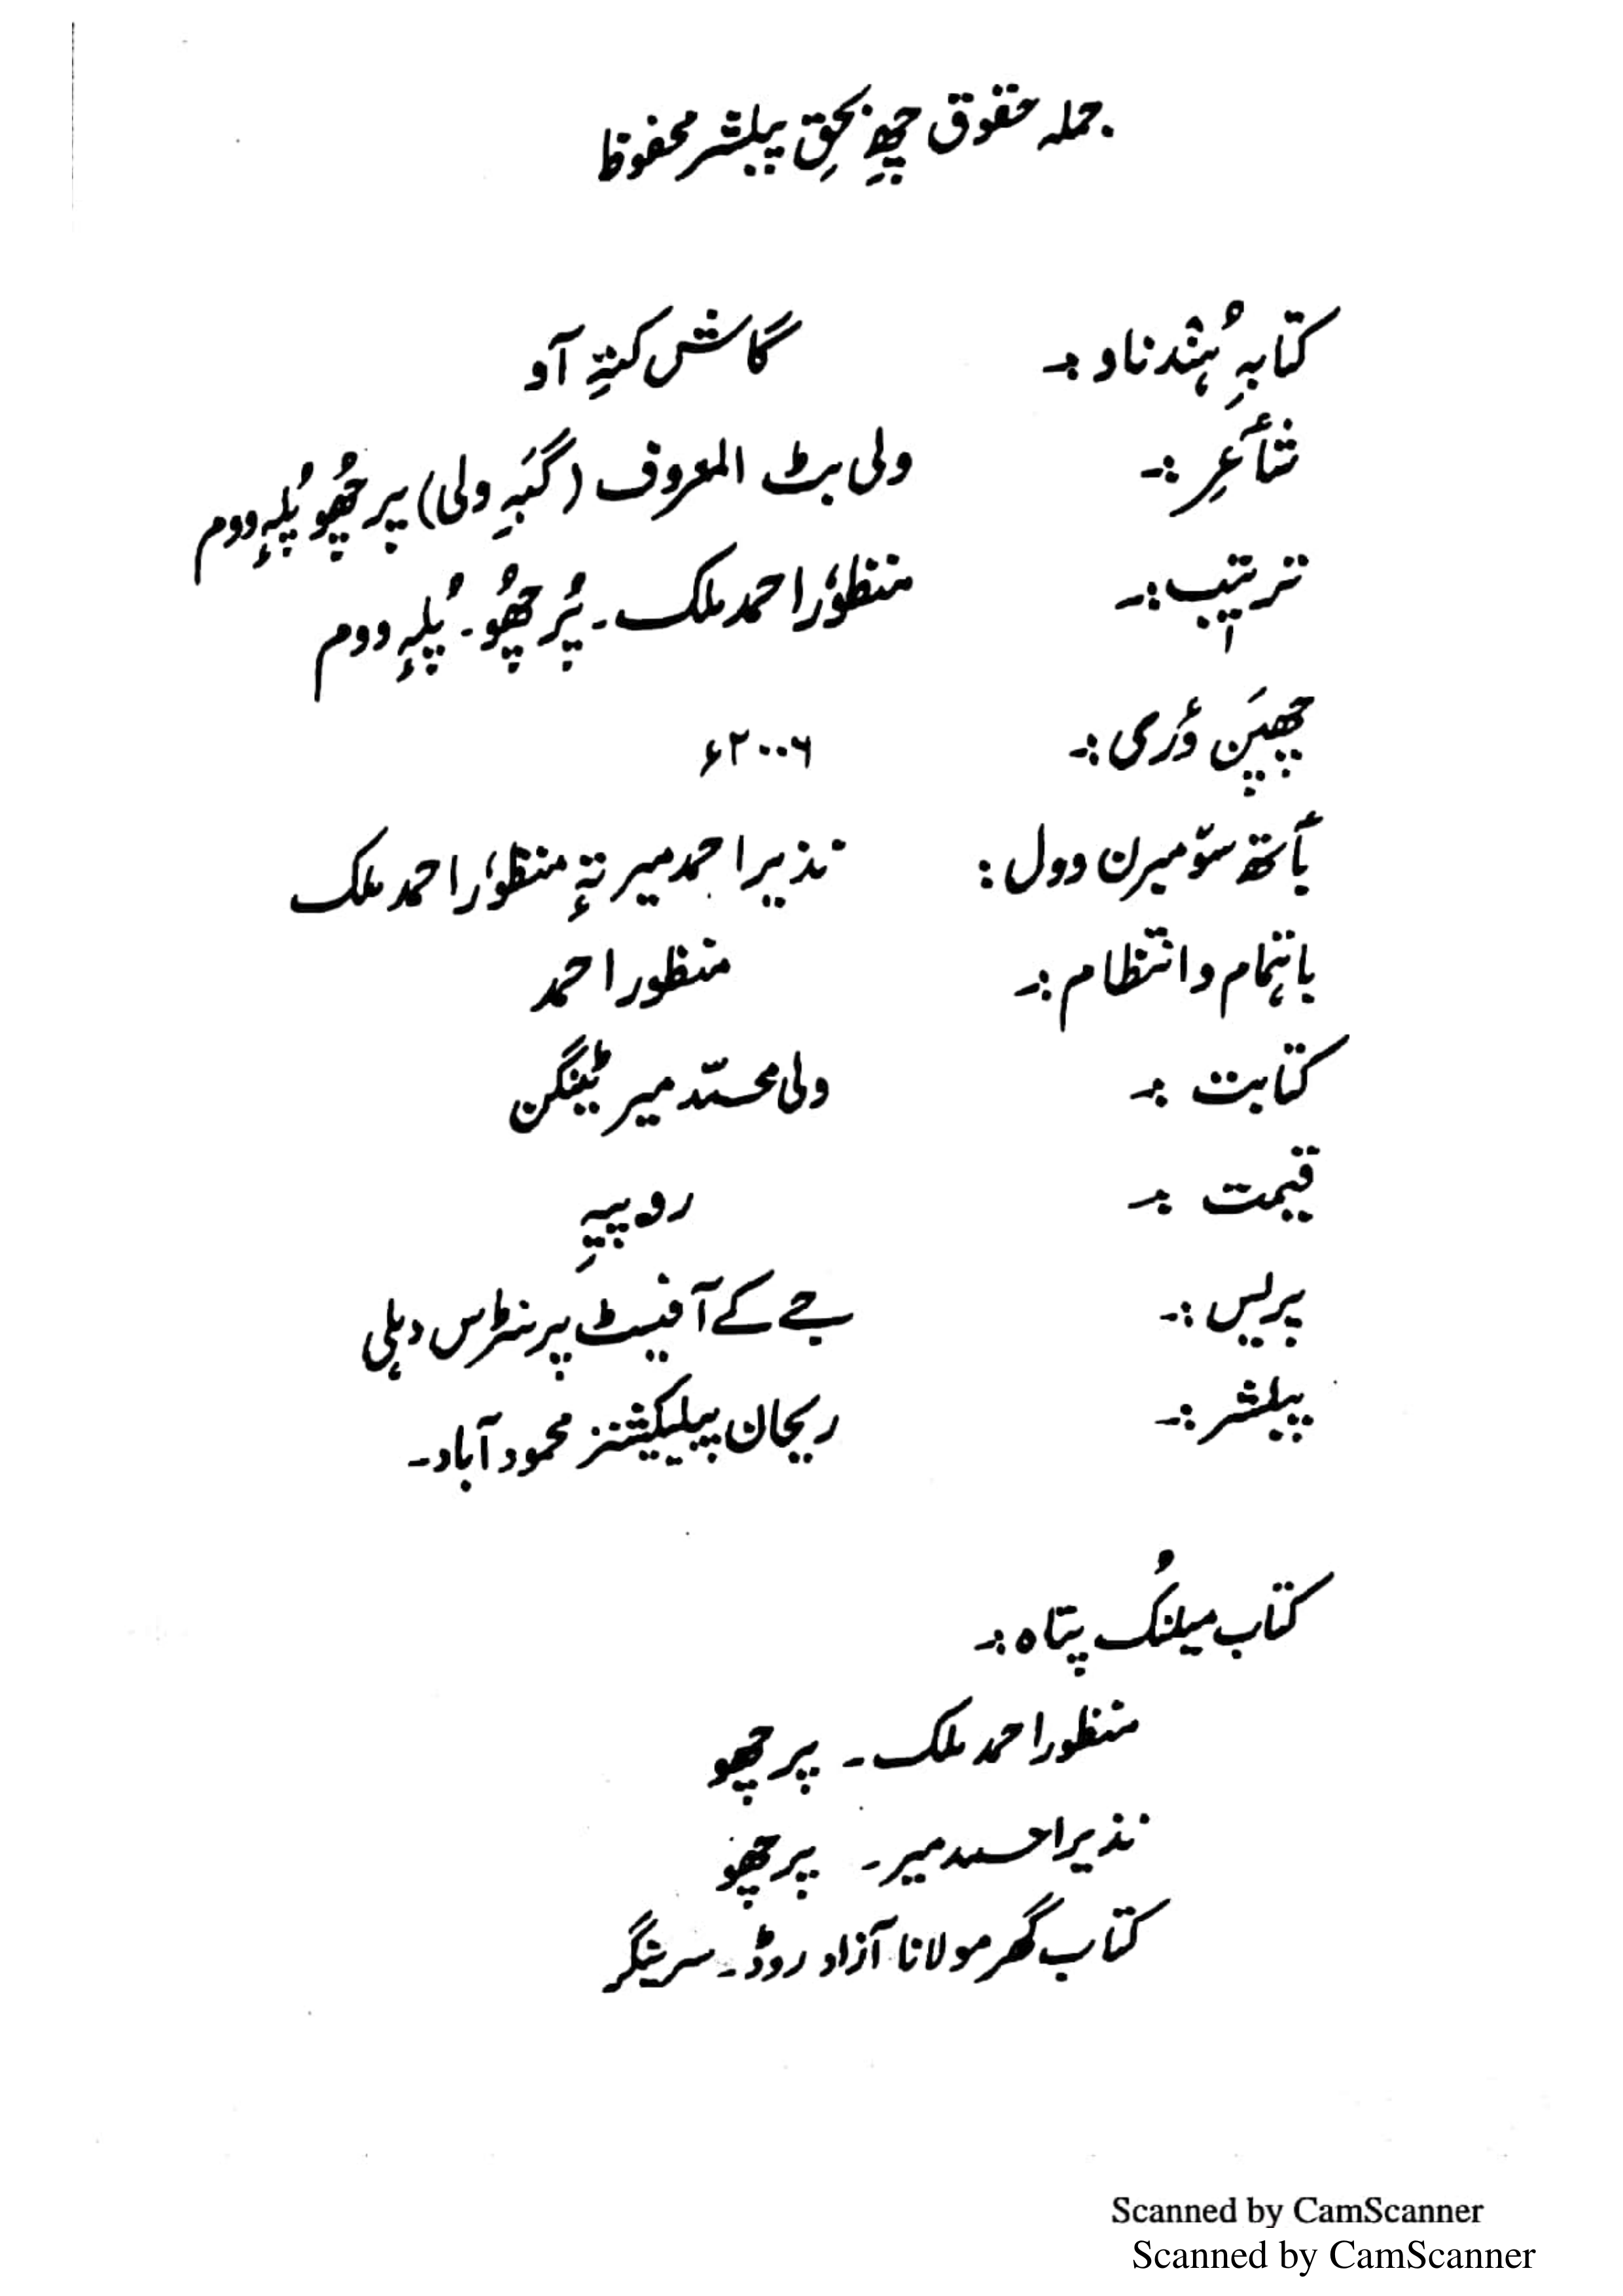 جملہ حقوق چھِہِ بحقِ پبلشر محفوظ
کتابہِ ہُنٛد ناو :۔ گاش کتہِ آو
شٲعِر :۔ ولی بٹ المعروف (گَبہِ ولی) پرٕ چھُو پُلہٕ ووم
ترتیٖب :۔ منظوٗر احمد ملک ۔ پُر چھُو ۔ پُلہٕ ووم
چھپَن وٲری :۔ ۲۰۰۶ء
بٲتھ سوٚمبرن وول : نذیر احمد میر تہٕ منظوٗر احمد ملک
باہتمام و انتظام :۔ منظور احمد
کتابت :۔ ولی محمّد میر ٹینگن
قیمت :۔ روپیہِ
پریس :۔ جے کے آفیسٹ پرنٹرس دہلی
پبلشر :۔ ریحان پبلیکیشنز محمود آباد۔
کتاب میلنُک پتاہ :۔
منظور احمد ملک ۔ پرچھو
نذیر احمد میر ۔ پرچھو
کتاب گھر مولانا آزاد روڈ ۔ سرینگر
Scanned by CamScanner
Scanned by CamScanner